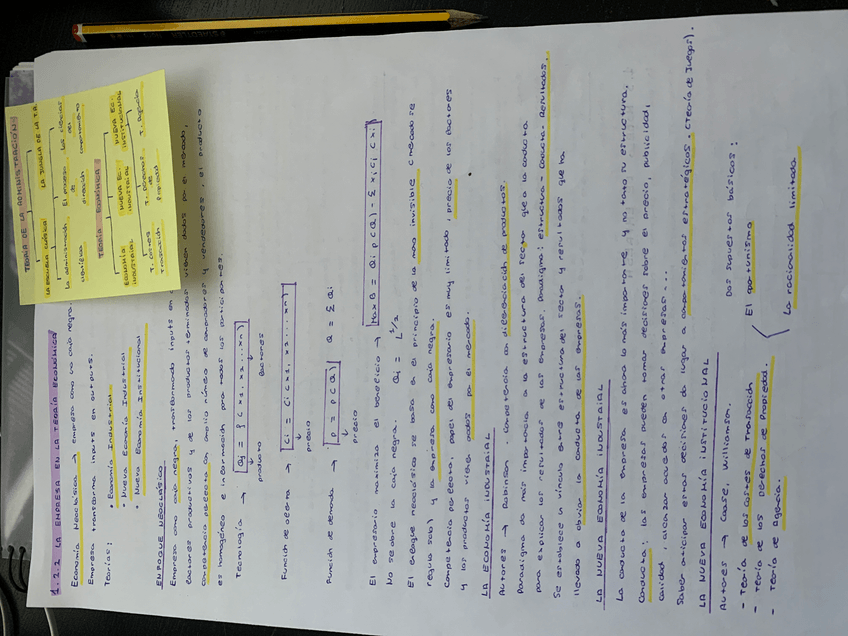 TEORÍA DE LA ADMINISTRACIÓN
LA ESCUELA CLÁSICA LA JUNGLA DE LA T.A.
La administración El proceso Las ciencias
de del
científica dirección comportamiento
TEORÍA ECONÓMICA
ECONOMÍA NUEVA EC. NUEVA EC.
INDUSTRIAL INDUSTRIAL INSTITUCIONAL
T. costes T. derechos T. Agencia
de
Transacción Propiedad
1.2.2 LA EMPRESA EN LA TEORÍA ECONÓMICA
Economía Neoclásica → empresa como una caja negra.
Empresa transforma inputs en outputs.
Teorías: • Economía Industrial
• Nueva Economía Industrial
• Nueva Economía Institucional
ENFOQUE NEOCLÁSICO
Empresa como caja negra, transformando inputs en
factores productivos y de los productos terminados vienen dados por el mercado,
competencia perfecta en amplio número de compradores y vendedores, el producto
es homogéneo e información para todos los participantes.
Tecnología → Qj = f (x1, x2 ... xn)
producto factores
Función de oferta → Ci = Ci (x1, x2 ... xn)
precio
Función de demanda → p = p(Q) Q = Σ Qi
precio
El empresario maximiza el beneficio → Max B = Qi p(Q) - Σ xi Ci (xi)
No se abre la caja negra. Qj = L^1/2
El enfoque neoclásico se basa en el principio de la mano invisible (mercado se
regula solo) y la empresa como caja negra.
Competencia perfecta, papel del empresario es muy limitado, precio de los factores
y los productos vienen dados por el mercado.
LA ECONOMÍA INDUSTRIAL
Autores → Robinson. Competencia con diferenciación de productos.
Paradigma da más importancia a la estructura del sector que a la conducta
para explicar los resultados de las empresas. Paradigma: estructura - Conducta - Resultados.
Se establece un vínculo entre estructura del sector y resultados que ha
llevado a obviar la conducta de las empresas.
LA NUEVA ECONOMÍA INDUSTRIAL
La conducta de la empresa es ahora lo más importante y no tanto su estructura.
Conducta: las empresas pueden tomar decisiones sobre el precio, publicidad,
calidad, alcanzar acuerdos con otras empresas...
Saber anticipar estas decisiones da lugar a comportamientos estratégicos. (Teoría de Juegos).
LA NUEVA ECONOMÍA INSTITUCIONAL
Autores → Coase, Williamson. Dos supuestos básicos:
- Teoría de los Costes de Transacción El oportunismo
- Teoría de los Derechos de Propiedad. La racionalidad limitada
- Teoría de Agencia.